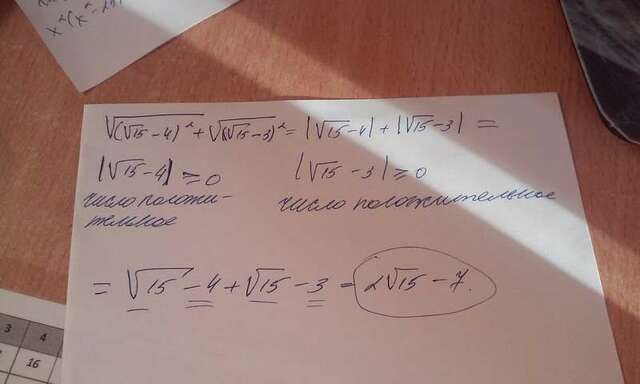 x²(x² -
√(√15 - 4)² + √(√15 - 3)² = |√15 - 4| + |√15 - 3| =
|√15 - 4| ≥ 0
число положи-
тельное
|√15 - 3| ≥ 0
число положительное
= √15 - 4 + √15 - 3 = 2√15 - 7.
3 4
16